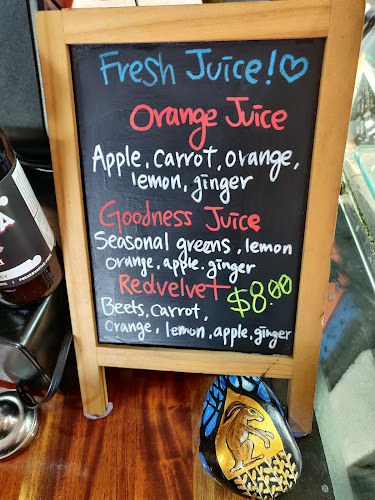 Fresh Juice!♡
Orange Juice
Apple, Carrot, orange,
lemon, ginger
Goodness Juice
Seasonal greens, lemon
orange, apple. ginger
Redvelvet $8.00
Beets, carrot,
Orange, lemon, apple, ginger